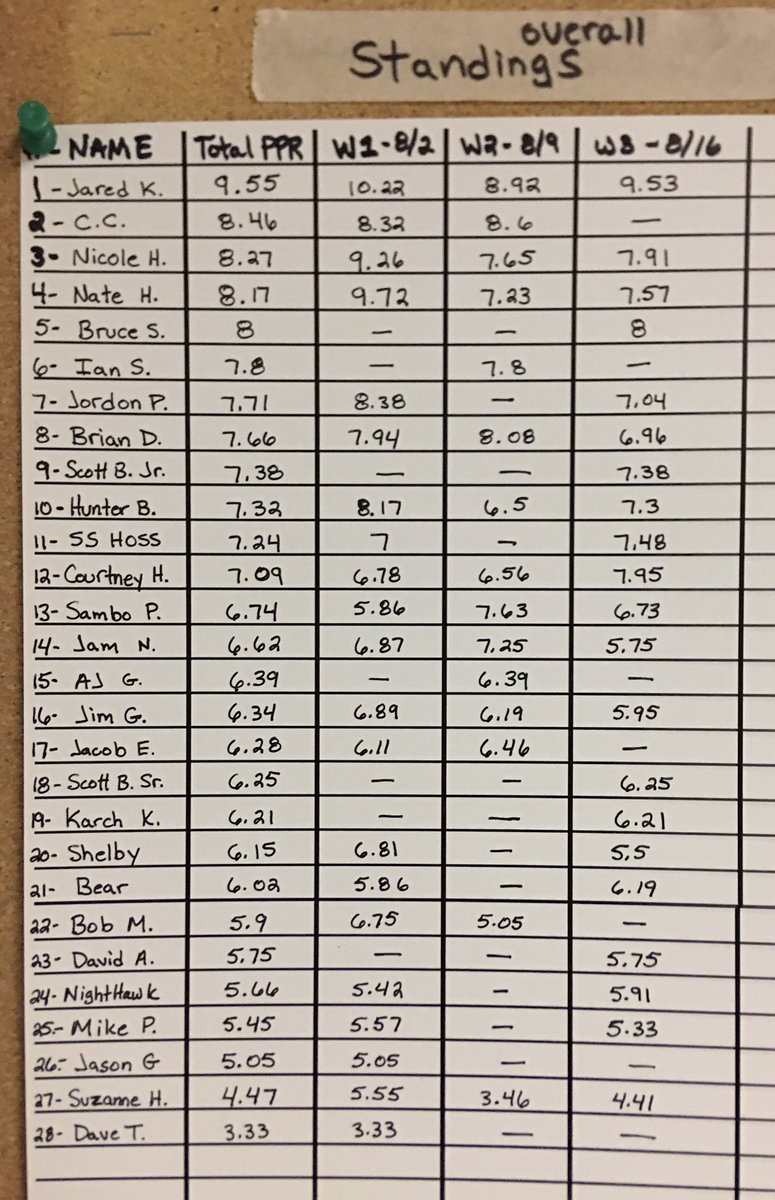 overall
Standings
NAME Total PPR W1-8/2 W2-8/9 W3-8/16
1- Jared K. 9.55 10.22 8.92 9.53
2- C.C. 8.46 8.32 8.6 —
3- Nicole H. 8.27 9.26 7.65 7.91
4- Nate H. 8.17 9.72 7.23 7.57
5- Bruce S. 8 — — 8
6- Ian S. 7.8 — 7.8 —
7- Jordon P. 7.71 8.38 — 7.04
8- Brian D. 7.66 7.94 8.08 6.96
9- Scott B. Jr. 7.38 — — 7.38
10- Hunter B. 7.32 8.17 6.5 7.3
11- SS HOSS 7.24 7 — 7.48
12- Courtney H. 7.09 6.78 6.56 7.95
13- Sambo P. 6.74 5.86 7.63 6.73
14- Jam N. 6.62 6.87 7.25 5.75
15- AJ G. 6.39 — 6.39 —
16- Jim G. 6.34 6.89 6.19 5.95
17- Jacob E. 6.28 6.11 6.46 —
18- Scott B. Sr. 6.25 — — 6.25
19- Karch K. 6.21 — — 6.21
20- Shelby 6.15 6.81 — 5.5
21- Bear 6.02 5.86 — 6.19
22- Bob M. 5.9 6.75 5.05 —
23- David A. 5.75 — — 5.75
24- NightHawk 5.66 5.42 — 5.91
25- Mike P. 5.45 5.57 — 5.33
26- Jason G 5.05 5.05 — —
27- Suzanne H. 4.47 5.55 3.46 4.41
28- Dave T. 3.33 3.33 — —